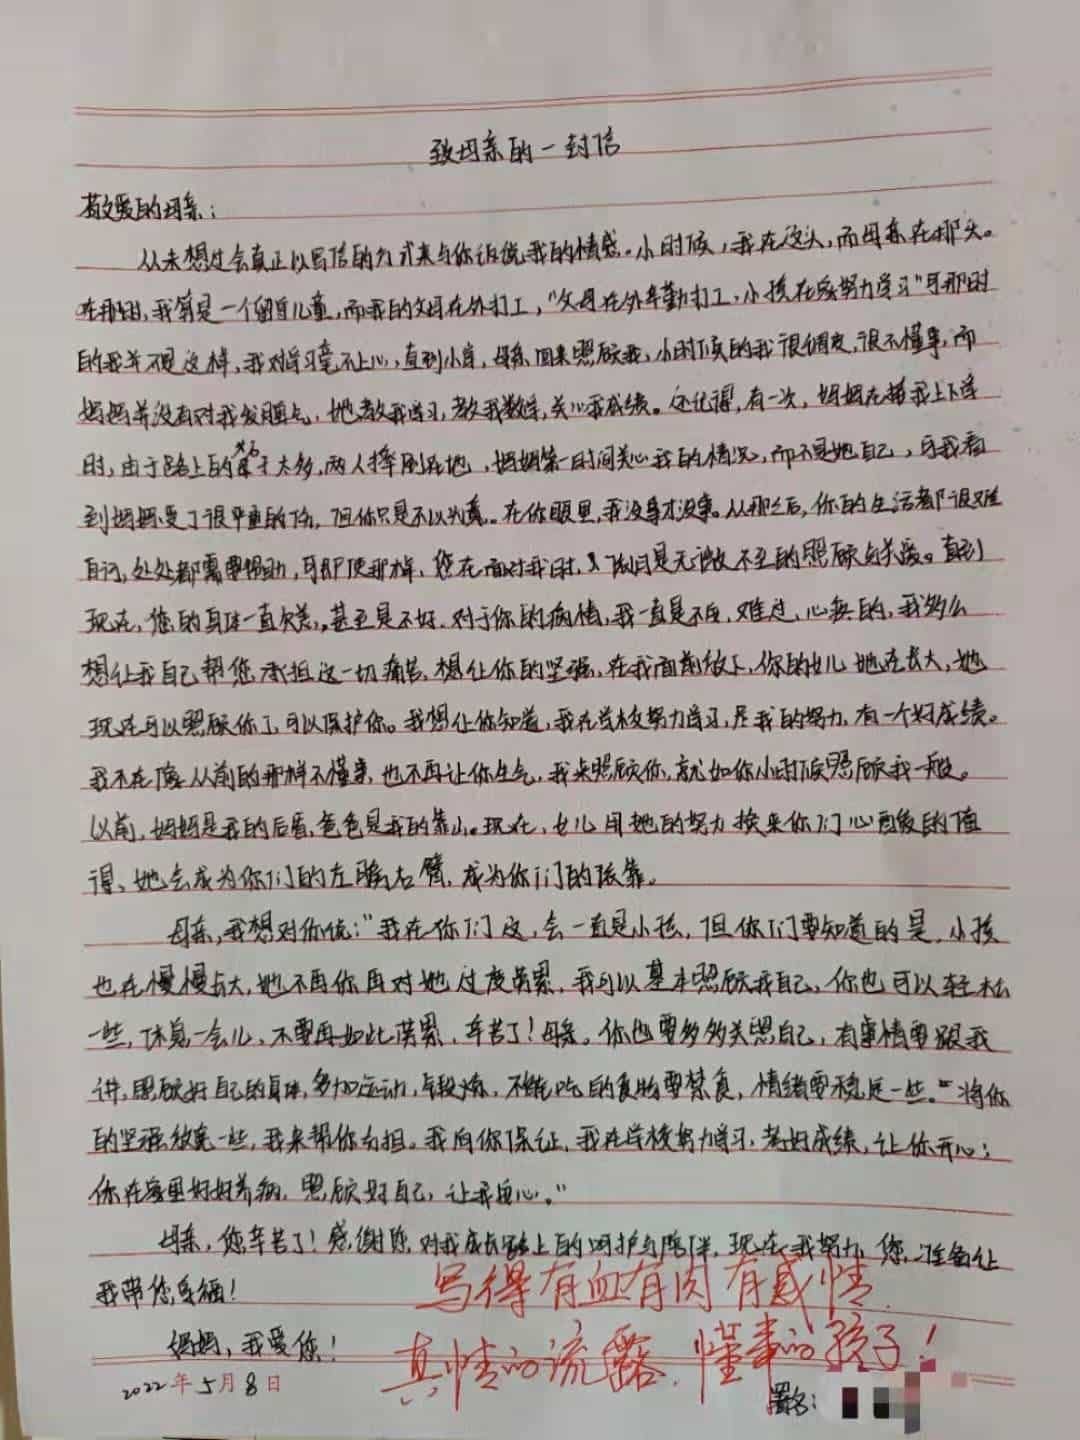 致母亲的一封信
敬爱的母亲：
从未想过会真正以写信的方式来与你诉说我的情感。小时候，我在这头，而母亲在那头。
在那时，我算是一个留守儿童，而我的父母在外打工，“父母在外辛勤打工，小孩在家努力学习”可那时
的我并不是这样，我对学习毫不上心，直到小学，母亲回来照顾我，小时候的我很调皮，很不懂事，而
妈妈并没有对我发脾气，她教我学习，教我数学，关心我成绩。还记得，有一次，妈妈在接我上下学
时，由于路上的太多，两人摔倒在地，妈妈第一时间关心我的情况，而不是她自己，可我看
到妈妈受了很严重的伤，但你只是不以为意。在你眼里，我没事才没事。从那之后，你的生活都很难
自理，处处都需要帮助，可即使那样，您在面对我时，仍旧是无微不至的照顾与关爱。直到
现在，您的身体一直欠差，甚至是不好，对于你的病情，我一直是不自，难过，心疼的，我多么
想让我自己帮您承担这一切痛苦，想让你的坚强，在我面前放下，你的女儿她在长大，她
现在可以照顾你了，可以保护你。我想让你知道，我在学校努力学习，尽我的努力，有一个好成绩。
我不在像从前的那样不懂事，也不再让你生气，我来照顾你，就如你小时候照顾我一般。
以前，妈妈是我的后盾，爸爸是我的靠山。现在，女儿用她的努力换来你们心酸后的值
得、她会成为你们的左膀右臂，成为你们的依靠。
母亲，我想对你说：“我在你们这，会一直是小孩，但你们要知道的是，小孩
也在慢慢长大，她不再你再对她过度劳累，我可以基本照顾我自己，你也可以轻松
一些，休息一会儿，不要再如此劳累，辛苦了！母亲。你也要多多关照自己，有事情要跟我
讲，照顾好自己的身体，多加运动，与锻炼，不能吃的食物要禁食，情绪要稳定一些。“将你
的坚强放宽一些，我来帮你分担。我向你保证，我在学校努力学习，考好成绩，让你开心；
你在家里好好养病，照顾好自己，让我放心。”
母亲，您辛苦了！感谢您，对我成长路上的呵护与陪伴，现在我努力，您，准备让
我带您享福！
妈妈，我爱您！
写得有血有肉有感情，
真情的流露，懂事的孩子！
2022年5月8日
署名：